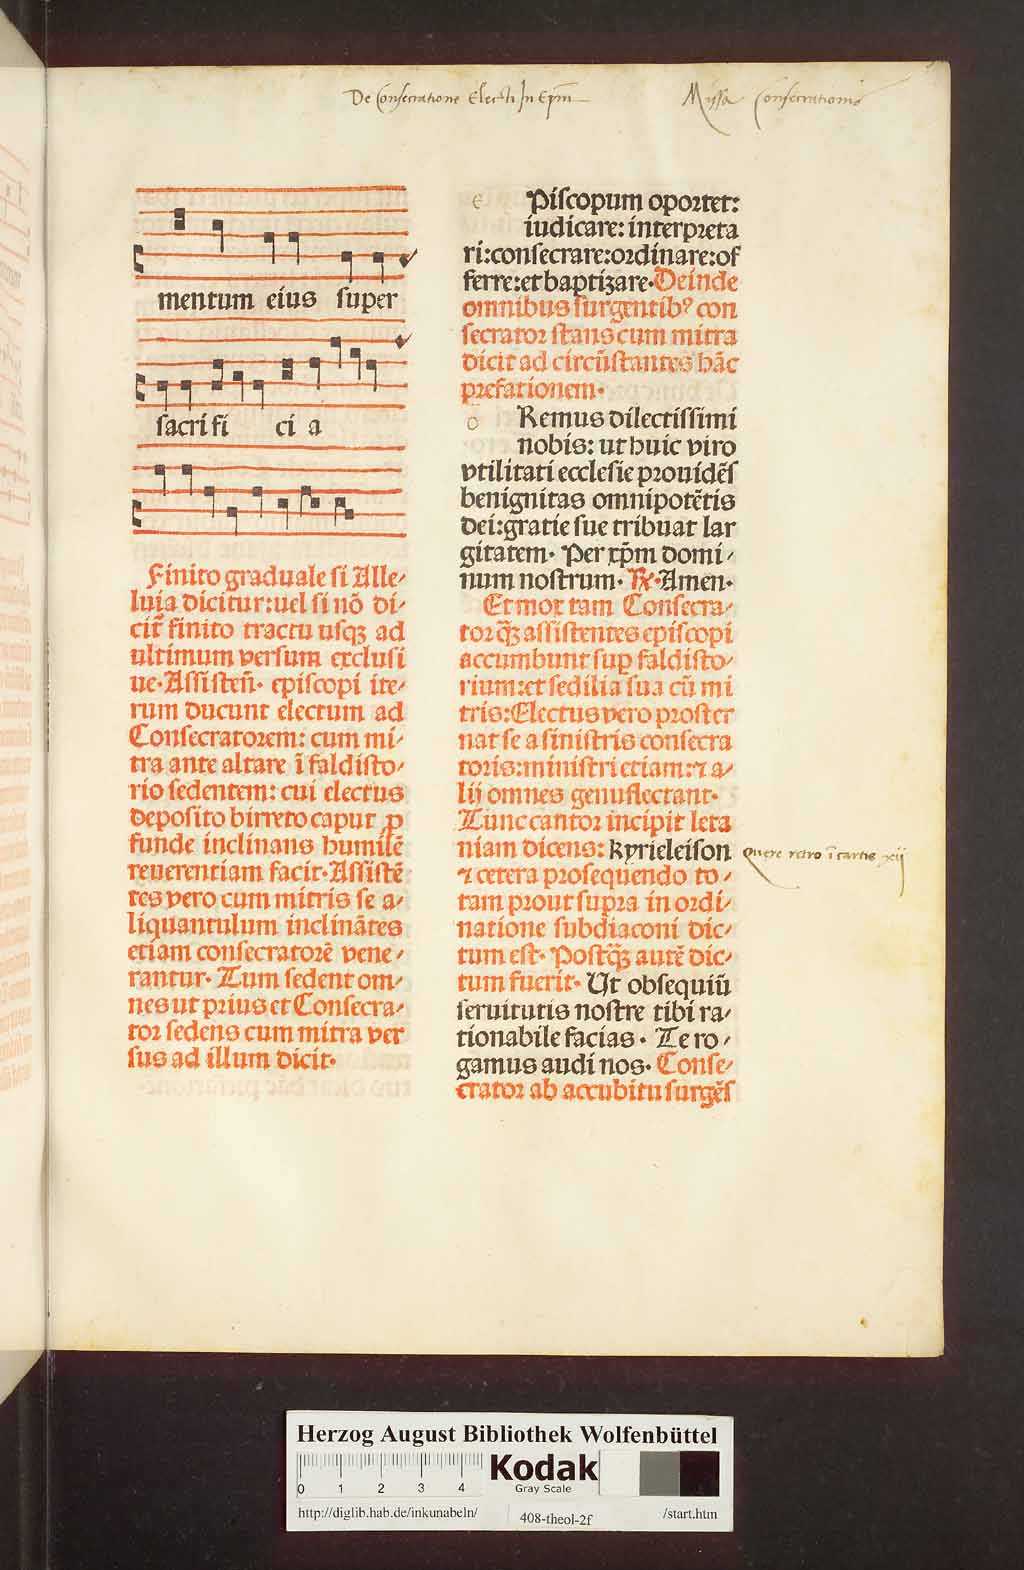 De Consecratione Electi In Ep̃m
Missa Consecrationis
mentum eius super
sacri fi ci a
Finito graduale si Alle-
luia dicitur: uel si nō di-
cit̃ finito tractu usqꝫ ad
ultimum versum exclusi
ue. Assisteñ. episcopi ite-
rum ducunt electum ad
Consecratorem: cum mi-
tra ante altare ī faldisto-
rio sedentem: cui electus
deposito birreto caput ꝓ
funde inclinans humilē
reuerentiam facit. Assistē
tes vero cum mitris se a-
liquantulum inclinātes
etiam consecratorē vene-
rantur. Tum sedent om-
nes ut prius et Consecra-
tor sedens cum mitra ver
sus ad illum dicit.
e Piscopum oportet:
iudicare: interpreta
ri: consecrare: ordinare: of
ferre: et baptizare. Deinde
omnibus surgentibꝰ con
secrator stans cum mitra
dicit ad circūstantes hāc
prefationem.
o Remus dilectissimi
nobis: ut huic viro
vtilitati ecclesie prouidēs
benignitas omnipotētis
dei: gratie sue tribuat lar
gitatem. Per xp̃m domi-
num nostrum. ℟. Amen.
Et mox tam Consecra-
tor q̃ꝫ assistentes episcopi
accumbunt suꝑ faldisto-
rium: et sedilia sua cū mi
tris: Electus vero proster
nat se a sinistris consecra
toris: ministri etiam: ⁊ a-
lij omnes genuflectant.
Tunc cantor incipit leta
niam dicens: Kyrieleison
Quere retro ī cartis xij
⁊ cetera prosequendo to-
tam prout supra in ordi-
natione subdiaconi dic-
tum est. Postq̃ꝫ autē dic-
tum fuerit. Ut obsequiū
seruitutis nostre tibi ra-
tionabile facias. Te ro-
gamus audi nos. Conse-
crator ab accubitu surgēs
Herzog August Bibliothek Wolfenbüttel
0 1 2 3 4
Kodak
Gray Scale
http://diglib.hab.de/inkunabeln/
408-theol-2f
/start.htm